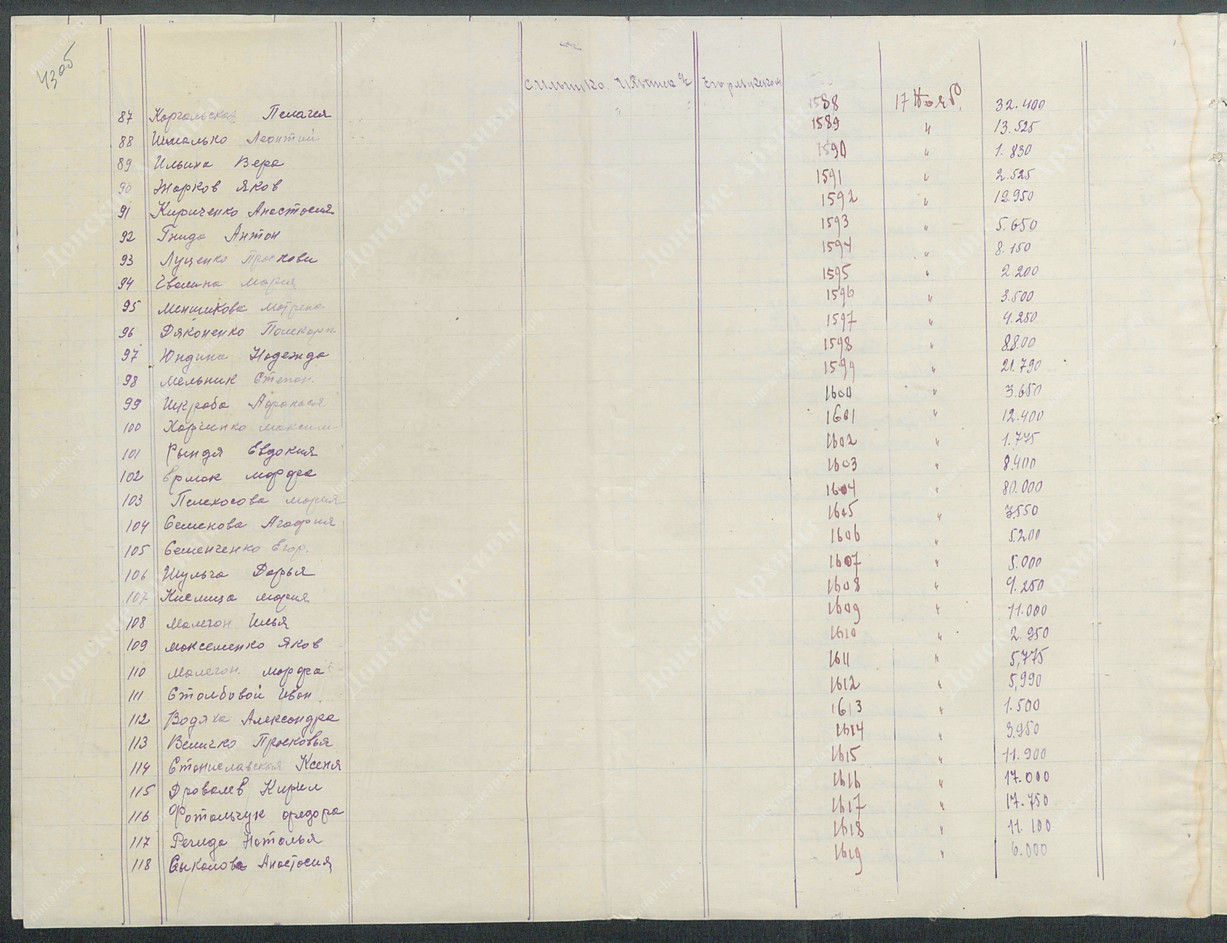 43об
87 Пелагея 1588 17 Нояб 32.400
88 Шималько Леонтий 1589 " 13.525
89 Ильина Вера 1590 " 1.830
90 Жарков Яков 1591 " 2.525
91 Кириченко Анастосия 1592 " 12.950
92 Гнида Антон 1593 " 5.650
93 Луценко Просковия 1594 " 8.150
94 Мария 1595 " 2.200
95 Меншикова Мотрена 1596 " 3.500
96 Дяконенко 1597 " 4.250
97 Юндина Надежда 1598 " 8800
98 Мельник Степан. 1599 " 21.790
99 Шкроба 1600 " 3.650
100 Харченко Максим 1601 " 12.400
101 Рындя Евдокия 1602 " 1.775
102 Ермак марфа 1603 " 8.400
103 Мария 1604 " 80.000
104 Семенова Агафия 1605 " 3,550
105 Семенченко Егор. 1606 " 5.200
106 Шульга Дарья 1607 " 5.000
107 Кислица мария 1608 " 9.250
108 Малегон Илья 1609 " 11.000
109 максеменко Яков 1610 " 2.950
110 малегон. марфа 1611 " 5,775
111 Столбовой Иван 1612 " 5,990
112 Водяха Александра 1613 " 1.500
113 Величко Просковья 1614 " 3.950
114 Станиславская Ксеня 1615 " 11.900
115 Дровалев Кирил 1616 " 17.000
116 Фотальчук федора 1617 " 17.750
117 Регида Наталья 1618 " 11.100
118 Сыколова Анастосия 1619 " 6.000